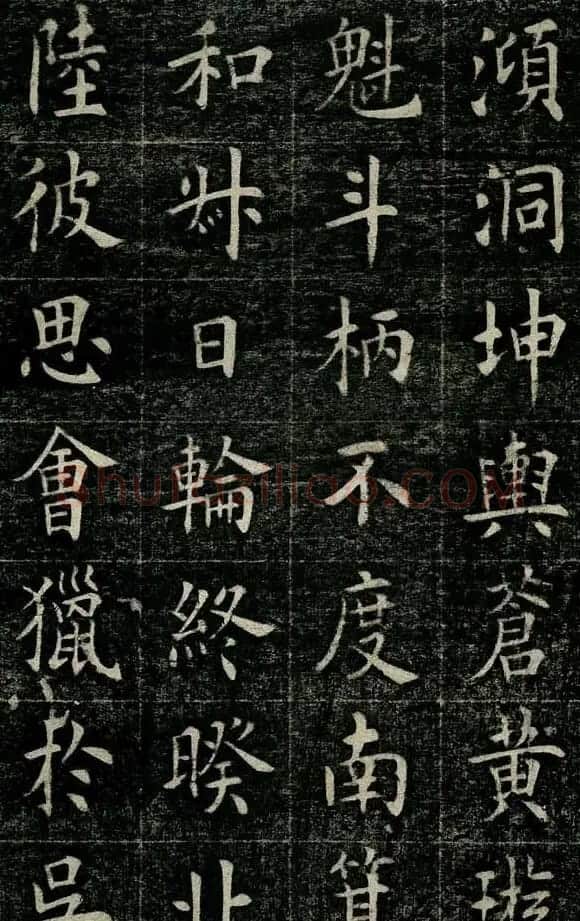 澒洞坤輿蒼黃璇
魁斗柄不度南箕
和叔日輪終暌北
陸彼思會獵於吳
shufaziliao.COM